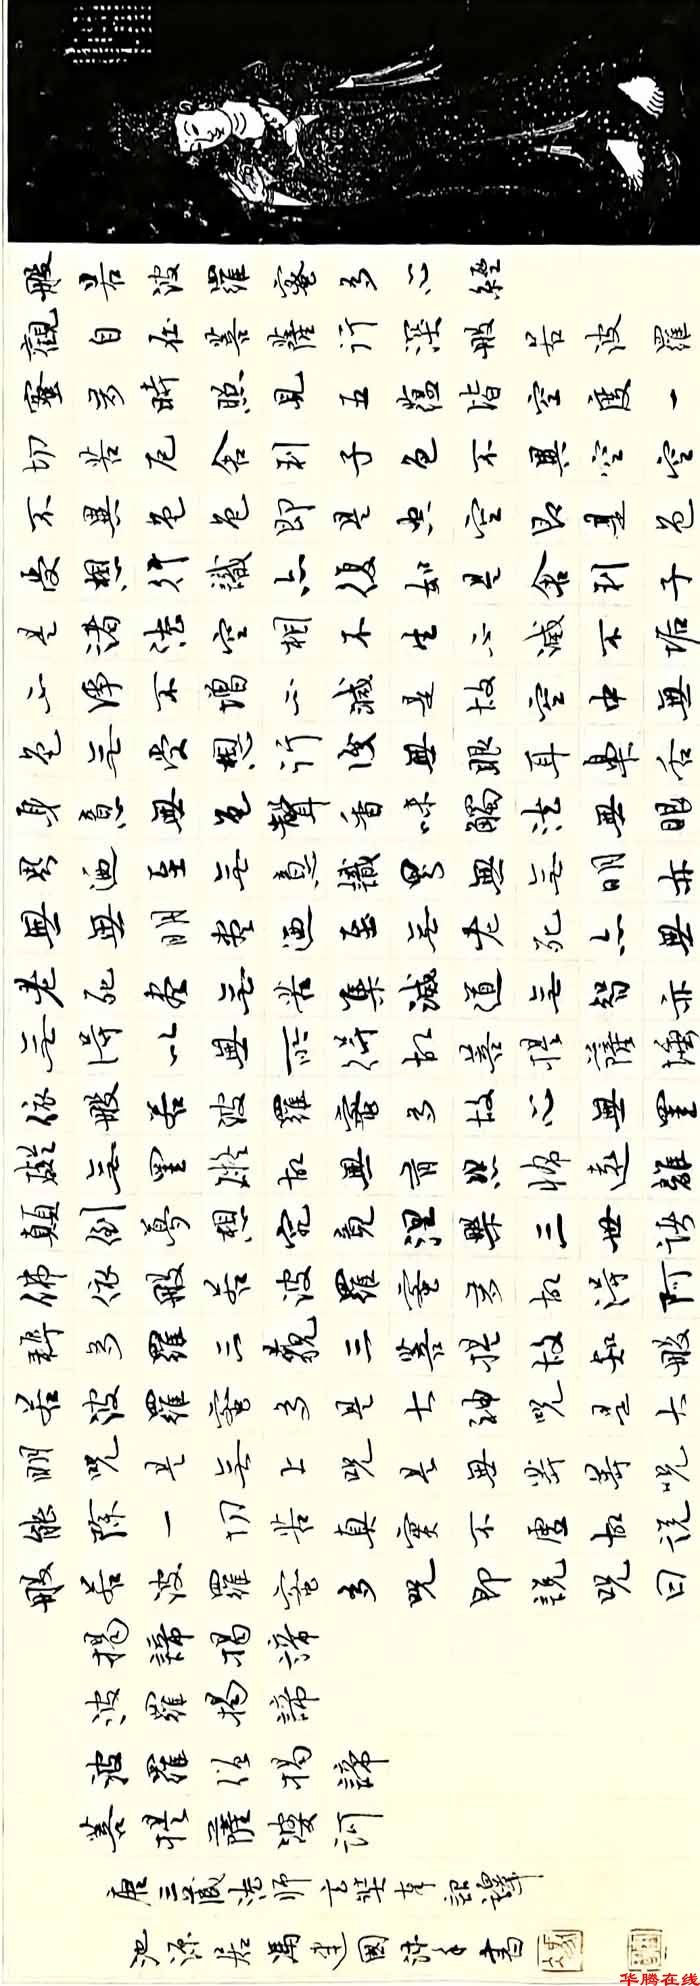 般若波羅蜜多心經
觀自在菩薩行深般若波羅
蜜多時照見五蘊皆空度一
切苦厄舍利子色不異空空
不異色色即是空空即是色
受想行識亦復如是舍利子
是諸法空相不生不滅不垢
不淨不增不減是故空中無
色無受想行識無眼耳鼻舌
身意無色聲香味觸法無眼
界迺至無意識界無無明亦
無無明盡迺至無老死亦無
老死盡無苦集滅道無智亦
無得以無所得故菩提薩埵
依般若波羅蜜多故心無罣
礙無罣礙故無有恐怖遠離
顛倒夢想究竟涅槃三世諸
佛依般若波羅蜜多故得阿
耨多羅三藐三菩提故知般
若波羅蜜多是大神咒是大
明咒是無上咒是無等等咒
能除一切苦真實不虛故说
般若波羅蜜多咒即說咒曰
揭諦揭諦
波羅揭諦
波羅僧揭諦
菩提薩婆訶
唐三藏法師玄奘奉詔譯
居馮建國沐手書
华腾在线